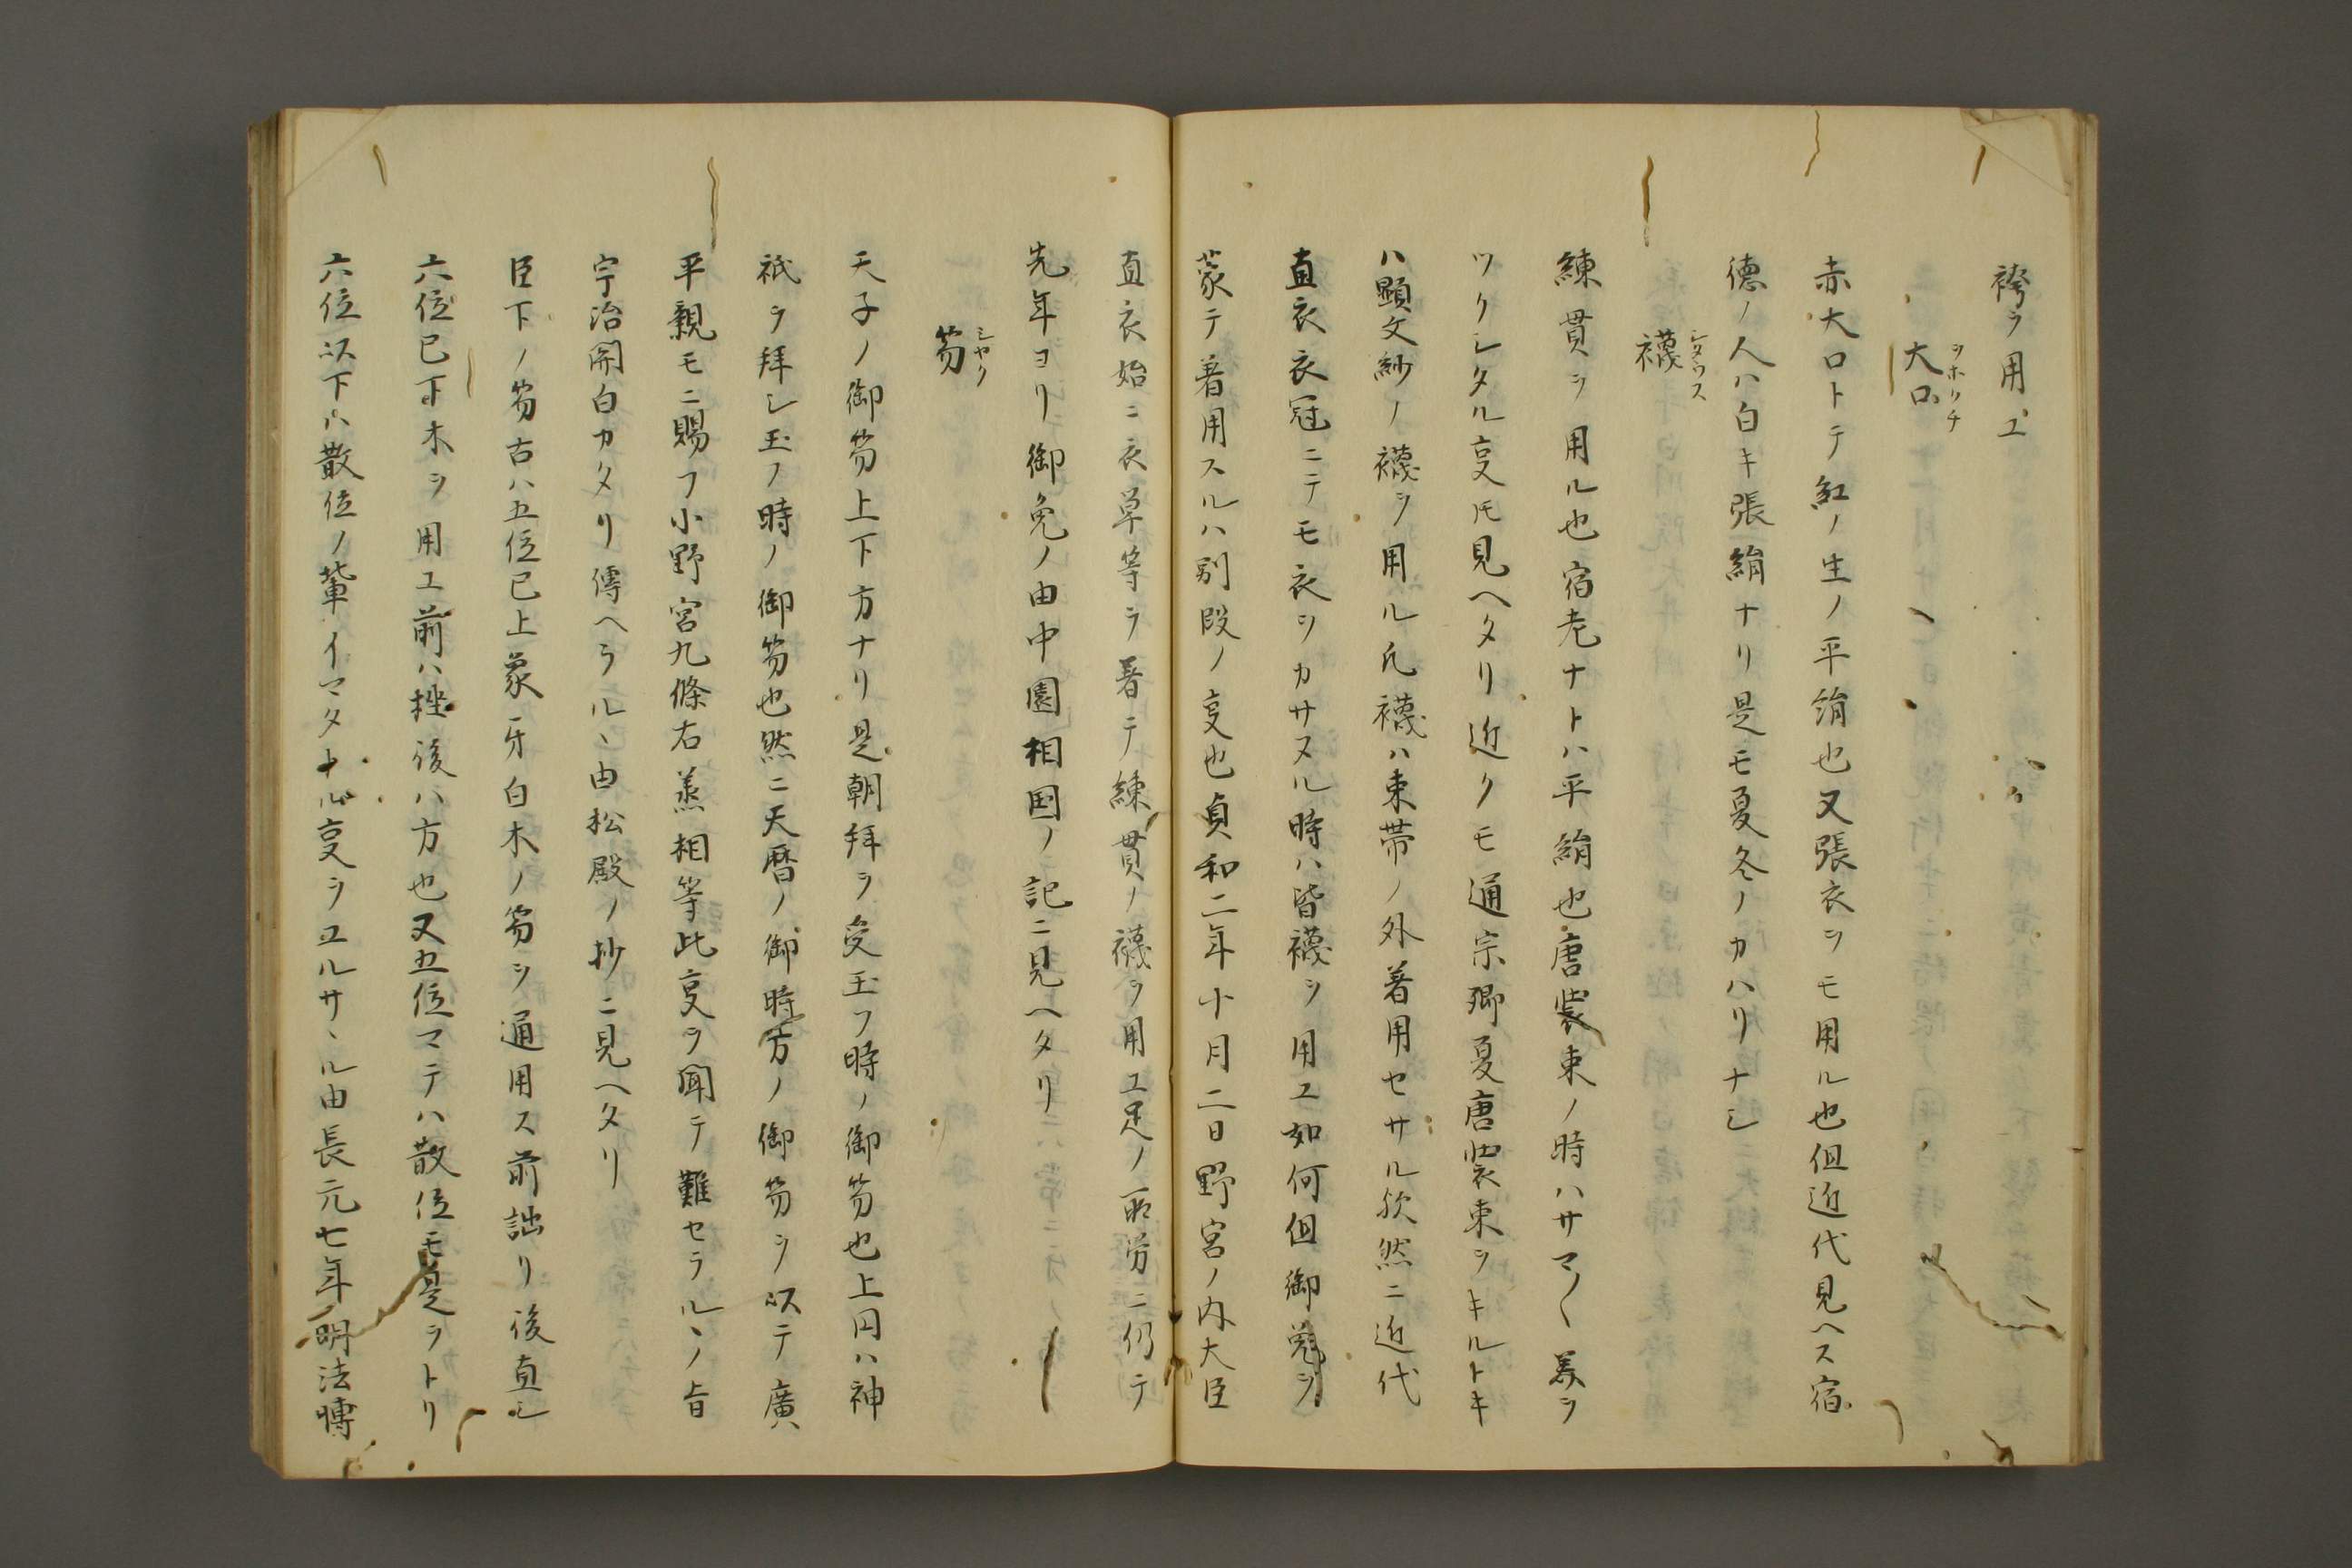 袴ヲ用ユ
大口 ヲホクチ
赤大口トテ紅ノ生ノ平絹也又張衣ヲモ用ル也但近代見ヘス宿
徳ノ人ハ白キ張絹ナリ是モ夏冬ノカハリナシ
襪 シタウス
練貫ヲ用ル也宿老ナトハ平絹也唐装束ノ時ハサマ〱美ヲ
ツクシタル亊𪜈見ヘタリ近クモ通宗卿夏唐装束ヲキルトキ
ハ顕文紗ノ襪ヲ用ル凡襪ハ束帯ノ外着用セサル欤然ニ近代
直衣衣冠ニテモ衣ヲカサヌル時ハ皆襪ヲ用ユ如何但御免ヲ
蒙テ着用スルハ別段ノ亊也貞和二年十月二日野宮ノ内大臣
直衣始ニ衣単等ヲ着テ練貫ノ襪ヲ用ユ足ノ所労ニ仍テ
先年ヨリ御免ノ由中園相国ノ記ニ見ヘタリ
笏 シヤク
天子ノ御笏上下方ナリ是朝拜ヲ受玉フ時ノ御笏也上円ハ神
祇ヲ拜シ玉ノ時ノ御笏也然ニ天暦ノ御時方ノ御笏ヲ以テ廣
平親王ニ賜フ小野宮九條右丞相等此亊ヲ聞テ難セラルヽノ旨
宇治関白カタリ傳ヘラルヽ由松殿ノ抄ニ見ヘタリ
臣下ノ笏古ハ五位已上象牙白木ノ笏ヲ通用ス前詘リ後直シ
六位已下木ヲ用ユ前ハ挫後ハ方也又五位マテハ散位モ是ヲトリ
六位以下ハ散位ノ輩イマタトル亊ヲユルサヽル由長元七年明法博